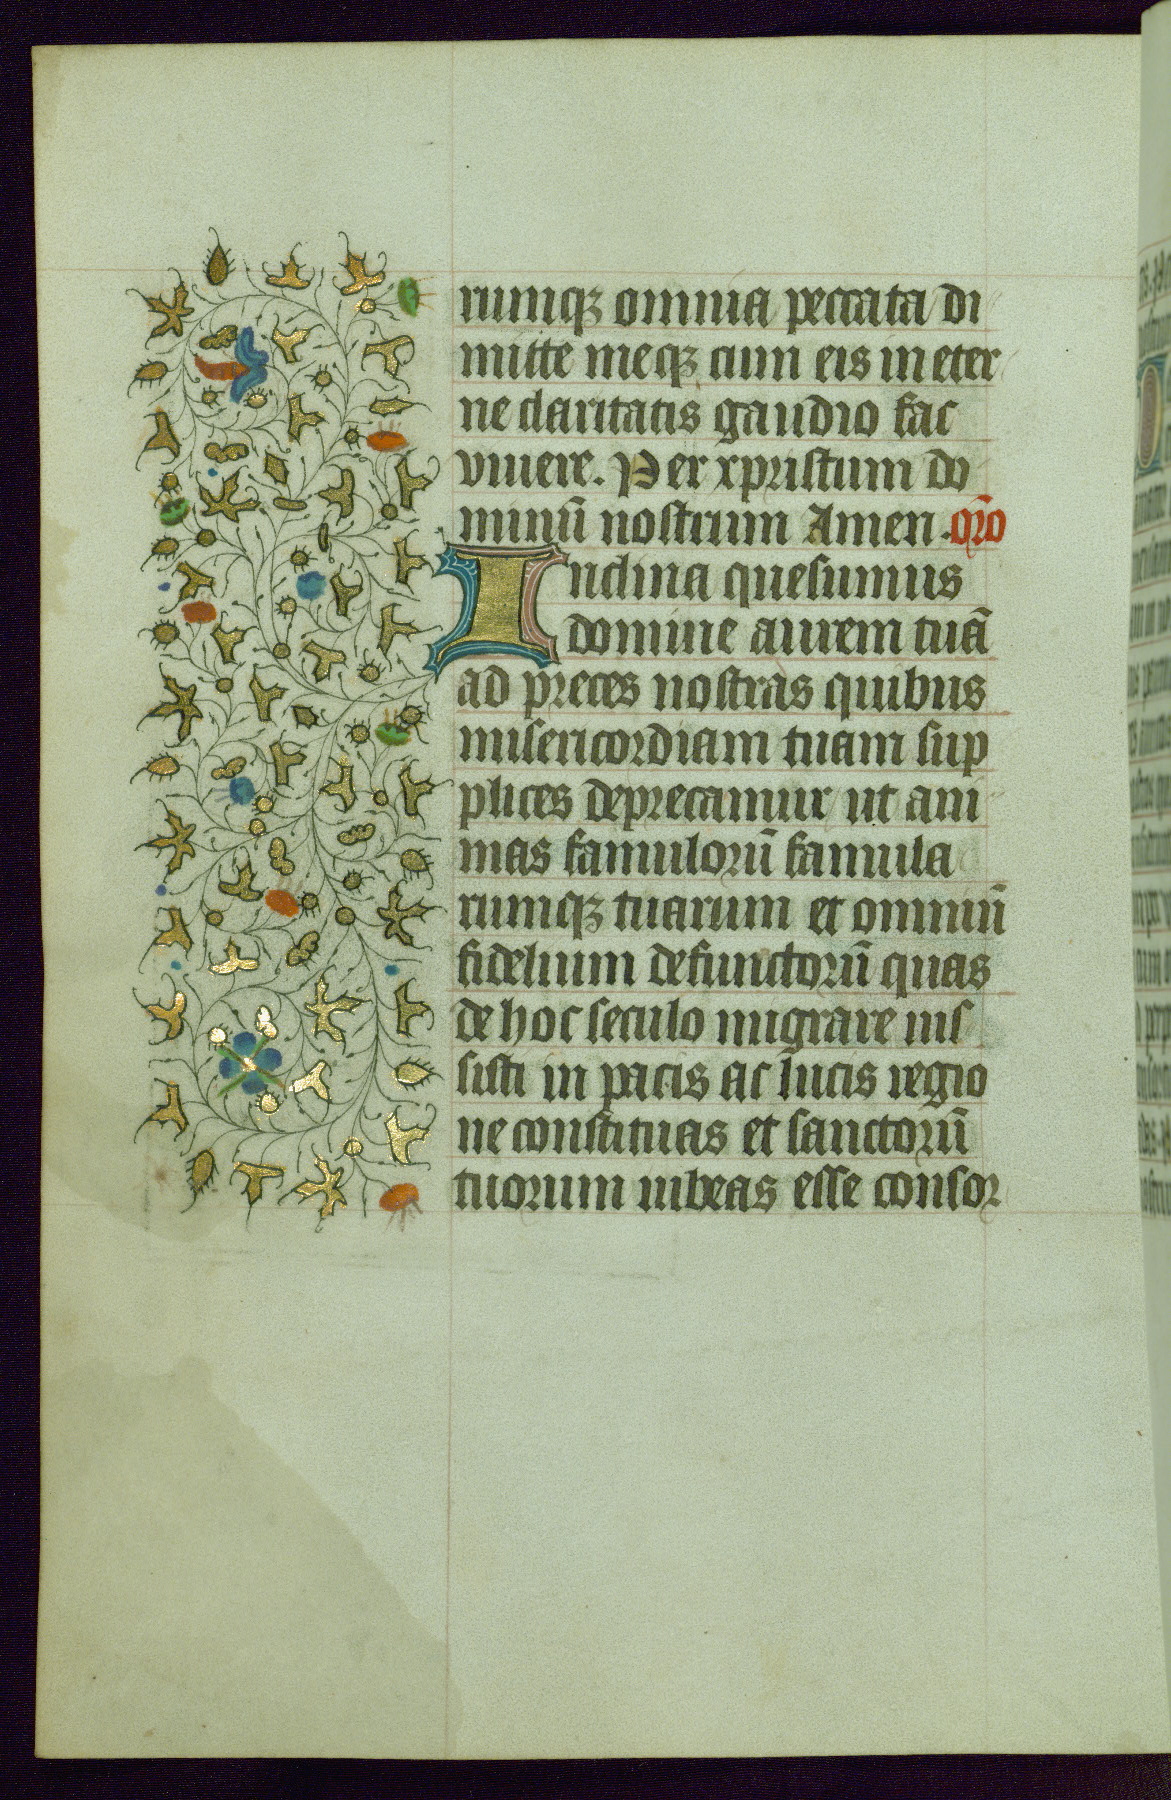 rumqꝫ omnia peccata di
mitte meqꝫ cum eis in eter
ne claritatis gaudio fac
viuere. Per xpristum do
minū nostrum Amen. oro̅
Inclina quesumus
domine aurem tuā
ad preces nostras quibus
misericordiam tuam sup
plices deprecamur ut ani
mas famulorū famula
rumqꝫ tuarum et omniū
fidelium defunctorū quas
de hoc seculo migrare ius
sisti in pacis ac lucis regio
ne constituas et sanctorū
tuorum iubeas esse consor